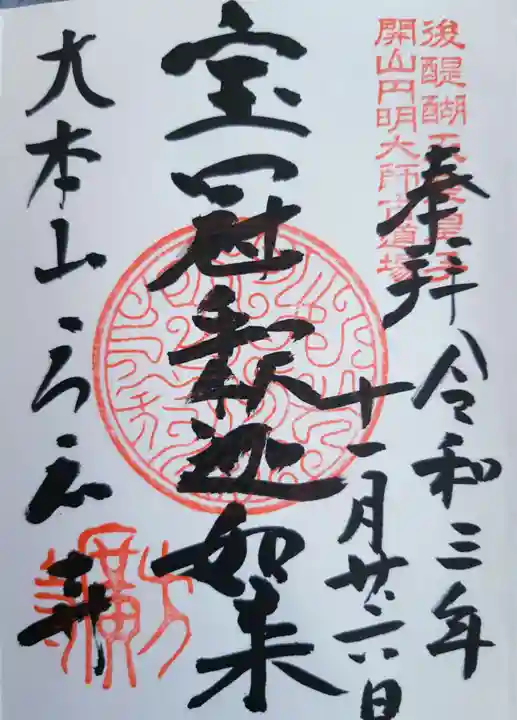 後醍醐天皇皇子
開山円明大師古道場
奉拝
令和三年
十一月廿六日
宝冠釈迦如来
大本山方広寺
方廣寺